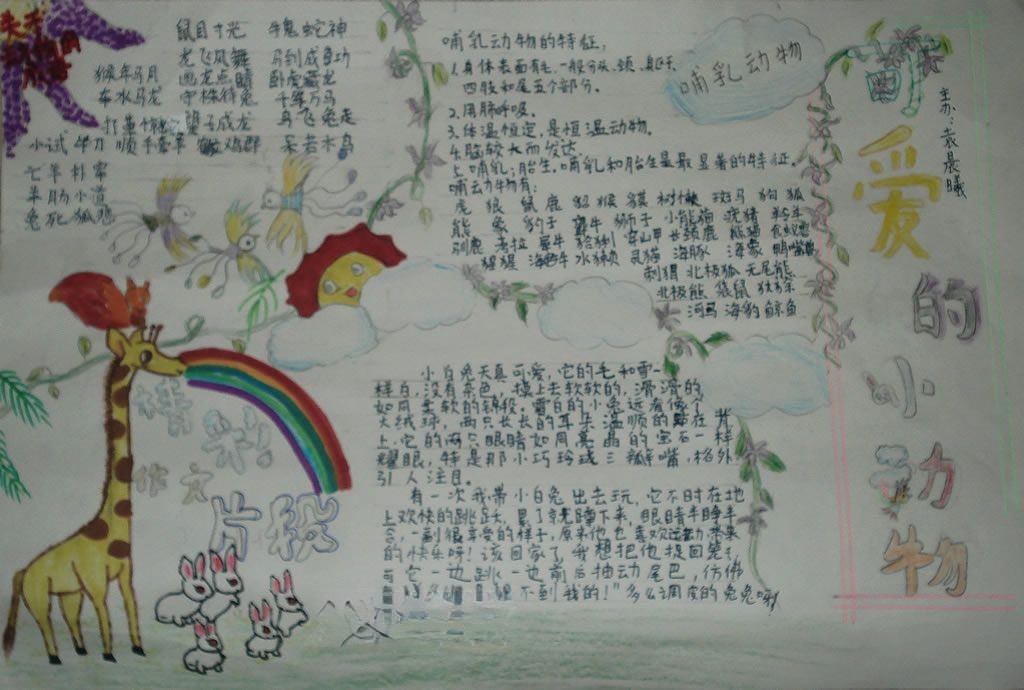 可爱的小动物
主办:袁晨曦
鼠目寸光 牛鬼蛇神
龙飞凤舞 马到成功
猴年马月 画龙点睛 卧虎藏龙
车水马龙 守株待兔 千军万马
打草惊蛇 望子成龙 乌飞兔走
小试牛刀 顺手牵羊 鸡群 呆若木鸡
羊肠小道
兔死狐悲
哺乳动物
哺乳动物的特征,
1.身体表面有毛,一般分头、颈、躯干、
四肢和尾五个部分。
2.用肺呼吸。
3.体温恒定,是恒温动物。
4.脑较大而发达
5.哺乳;胎生。哺乳和胎生是最显著的特征。
哺动物有:
虎 狼 鼠 鹿 貂 猴 貘 树懒 斑马 狗 狐
熊 象 豹子 麝牛 狮子 小熊猫 疣猪 羚羊
驯鹿 考拉 犀牛 猞猁 穿山甲 长颈鹿 熊猫 食蚁兽
猩猩 海牛 水獭 灵猫 海豚 海象 鸭嘴兽
刺猬 北极狐 无尾熊
北极熊 袋鼠
河马 海豹 鲸鱼
精彩
作文
片段
小白兔天真可爱,它的毛和雪一
样白,没有杂色,摸上去软软的,滑滑的
如同柔软的锦段。雪白的小兔远看像个
大绒球,两只长长的耳朵温顺的贴在背
上,它的两只眼睛如同亮晶的宝石一样
耀眼,特是那小巧玲珑三瓣嘴,格外
引人注目。
有一次我带小白兔出去玩,它不时在地
上欢快的跳跃,累了就蹲下来,眼睛半睁半
合,一副很享受的样子,原来他也喜欢运动带来
的快乐呀!该回家了,我想把他捉回笼子,
可它一边跳一边前后抽动尾巴,仿佛
不到我的!"多么调皮的兔兔啊